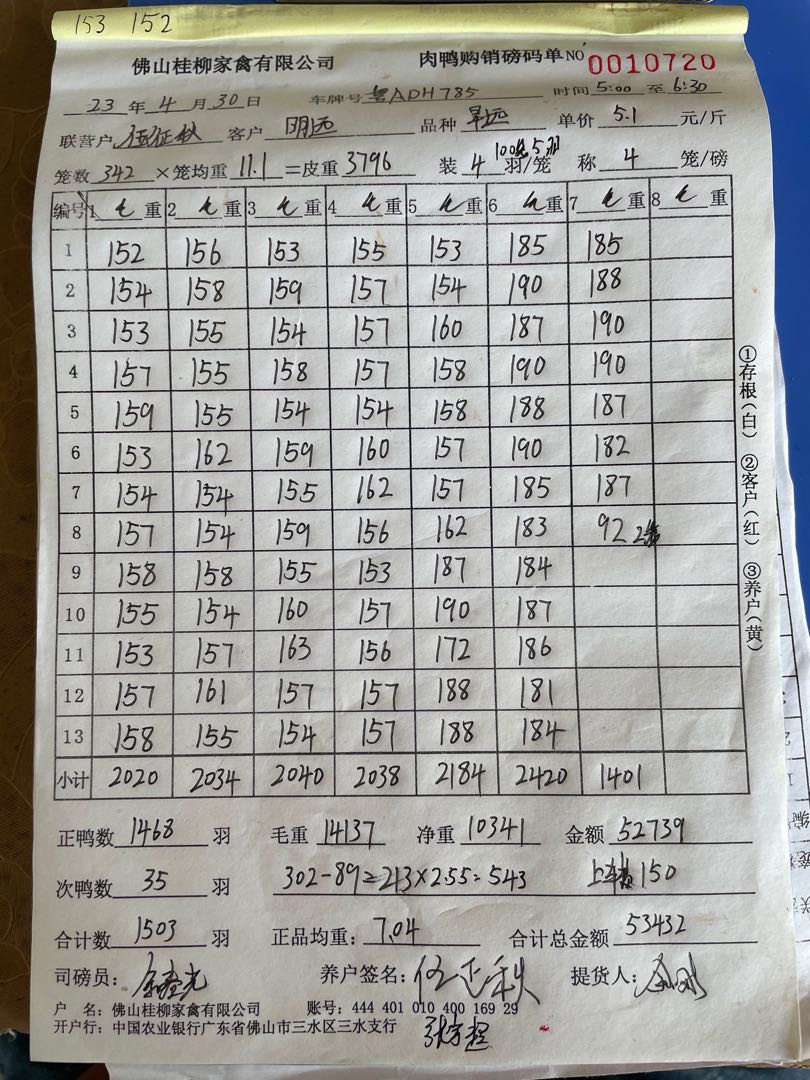 153 152
佛山桂柳家禽有限公司 肉鸭购销磅码单 NO 0010720
23 年 4 月 30 日 车牌号 粤ADH785 时间 5:00 至 6:30
联营户 伍征秋 客户 明远 品种 单价 5.1 元/斤
笼数 342 ×笼均重 11.1 =皮重 3796 装 4 羽/笼 称 4 笼/磅
编号 1 毛 重 2 毛 重 3 毛 重 4 毛 重 5 毛 重 6 毛 重 7 毛 重 8 毛 重
1 152 156 153 155 153 185 185
2 154 158 159 157 154 190 188
3 153 155 154 157 160 187 190
4 157 155 158 157 158 190 190
5 159 155 154 154 158 188 187
6 153 162 159 160 157 190 182
7 154 154 155 162 157 185 187
8 157 154 159 156 162 183 92 2笼
9 158 158 155 153 187 184
10 155 154 160 157 190 187
11 153 157 163 156 172 186
12 157 161 157 157 188 181
13 158 155 154 157 188 184
小计 2020 2034 2040 2038 2184 2420 1401
正鸭数 1468 羽 毛重 14137 净重 10341 金额 52739
次鸭数 35 羽 302-89=213×2.55=543 上车费150
合计数 1503 羽 正品均重: 7.04 合计总金额 53432
司磅员: 养户签名: 提货人:
户 名: 佛山桂柳家禽有限公司 账号: 444 401 010 400 169 29
开户行: 中国农业银行广东省佛山市三水区三水支行
①存根(白) ②客户(红) ③养户(黄)